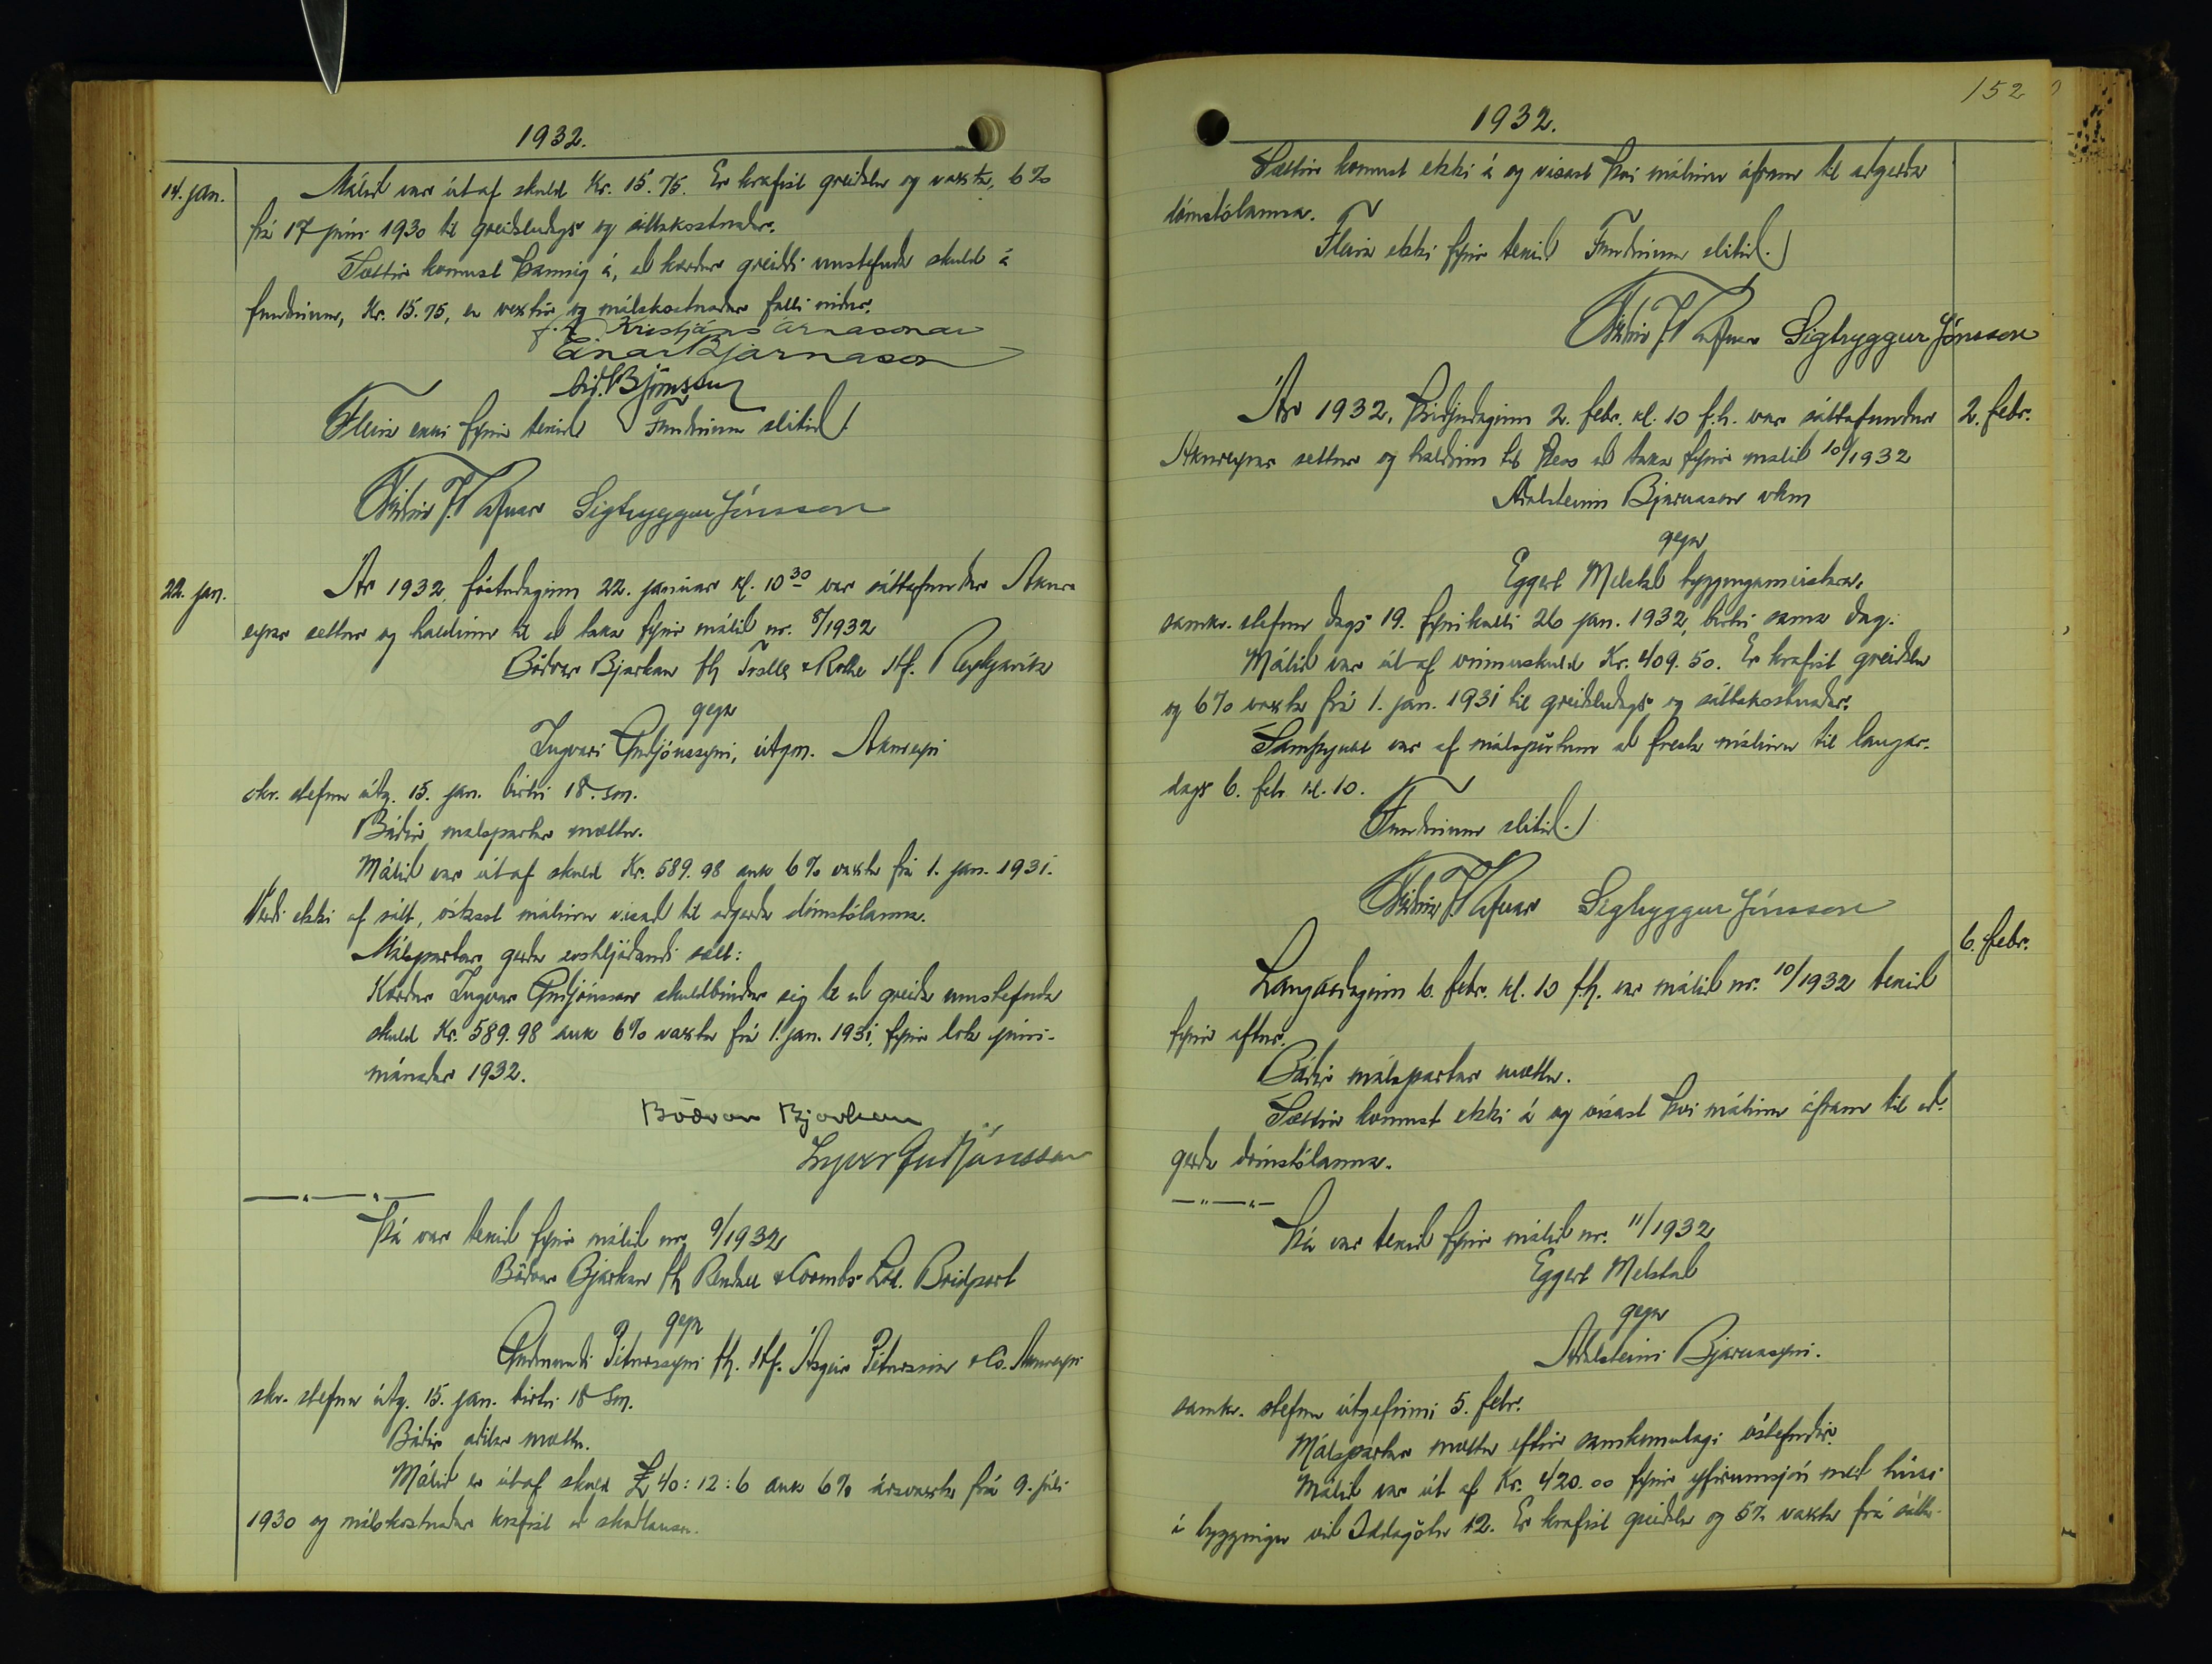 1932.
14. jan.
Málið var út af skuld Kr. 15.75. Er krafist greiðslu og vaxta, 6%
frá 17 júní 1930 til greiðsludags og sáttakostnaðar.
Sættir komust þannig á, að kærður greiddi umstefnda skuld á
fundinum, Kr. 15.75, en vextir og málskostnaður falli niður.
f.h. Kristjáns Árnasonar
Einar Bjarnason
Björnsson
Fleira ekki fyrir tekið Fundinum slitið.
Friðrik J. Rafnar Sigtryggur Jónsson
22. jan.
Ár 1932, föstudaginn 22. janúar kl. 10 30 var sáttafundur Akur-
eyrar settur og haldinn til að taka fyrir málið nr. 8/1932
Böðvar Bjarkan fh Trolle & Rothe Hf. Reykjavík
gegn
Ingvari Guðjónssyni, útgm. Akureyri
skv. stefnu útg. 15. jan. birtri 18. s.m.
Báðir málspartar mættu.
Málið var út af skuld Kr. 589.98 auk 6% vaxta frá 1. jan. 1931.
Verði ekki af sátt, óskast málinu vísað til aðgerða dómstólanna.
Málspartar gerðu svohljóðandi sátt:
Kærður Ingvar Guðjónsson skuldbindur sig til að greiða umstefnda
skuld Kr. 589.98 auk 6% vaxta frá 1. jan. 1931, fyrir lok júní-
mánaðar 1932.
Böðvar Bjarkan
Ingvar Guðjónsson
Þá var tekið fyrir málið nr. 9/1932
Böðvar Bjarkan fh Rendall & Coombs Ltd. Bridport
gegn
Guðmundi Péturssyni fh. Hf. Ásgeir Pétursson & Co. Akureyri
skv. stefnu útg. 15. jan. birtri 18 s.m.
Báðir aðilar mættu.
Málið er út af skuld £ 40:12:6 auk 6% ársvaxta frá 9. júlí
1930 og málskostnaðar krafist að skaðlausu.
152
1932.
Sættir komust ekki á og vísast því málinu áfram til aðgerða
dómstólanna.
Fleira ekki fyrir tekið. Fundinum slitið.
Friðrik J. Rafnar Sigtryggur Jónsson
2. febr.
Ár 1932, Þriðjudaginn 2. febr. kl. 10 f.h. var sáttafundur
Akureyrar settur og haldinn til þess að taka fyrir málið 10/1932
Aðalsteinn Bjarnason vkm
gegn
Eggert Melstað byggingameistara,
samkv. stefnu dags 19. fyrirkalli 26 jan. 1932, birtri sama dag.
Málið var út af vinnuskuld Kr. 409.50. Er krafist greiðslu
og 6% vaxta frá 1. jan. 1931 til greiðsludags og sáttakostnaðar.
Samþykkt var af málspörtum að fresta málinu til laugar-
dags 6. febr. kl. 10.
Fundinum slitið.
Friðrik J. Rafnar Sigtryggur Jónsson
6. febr.
Laugardaginn 6. febr. kl. 10 f.h. var málið nr. 10/1932 tekið
fyrir aftur.
Báðir málspartar mættu.
Sættir komust ekki á og vísast því málinu áfram til að-
gerða dómstólanna.
Þá var tekið fyrir málið nr. 11/1932
Eggert Melstað
gegn
Aðalsteini Bjarnasyni.
samkv. stefnu útgefinni 5. febr.
Málspartar mættu eftir samkomulagi óstefndir.
Málið var út af Kr. 420.00 fyrir yfirumsjón með húsi
í byggingu við Oddagötu 12. Er krafist greiðslu og 5% vaxta frá sátta-